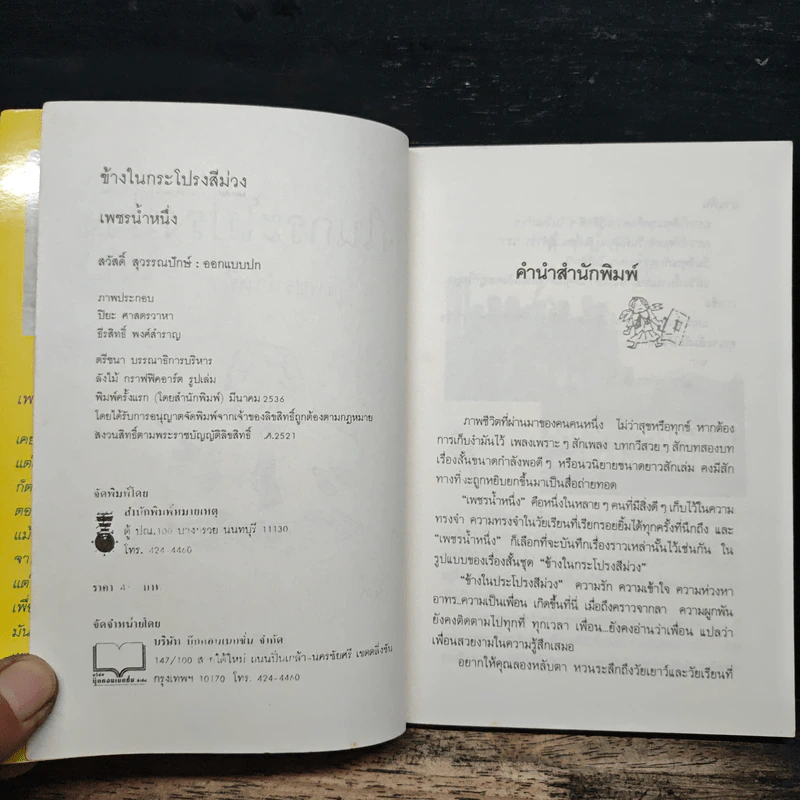 ข้างในกระโปรงสีม่วง
เพชรน้ำหนึ่ง
สวัสดิ์ สุวรรณปักษ์ : ออกแบบปก
ภาพประกอบ
ปิยะ ศาสตรวาหา
ธีรสิทธิ์ พงศ์สำราญ
ตรีชนา บรรณาธิการบริหาร
ลังไม้ กราฟฟิคอาร์ต รูปเล่ม
พิมพ์ครั้งแรก (โดยสำนักพิมพ์) มีนาคม 2536
โดยได้รับการอนุญาตจัดพิมพ์จากเจ้าของลิขสิทธิ์ถูกต้องตามกฎหมาย
สงวนสิทธิ์ตามพระราชบัญญัติลิขสิทธิ์
จัดพิมพ์โดย
สำนักพิมพ์หมายเหตุ
ตู้ ปณ.100 บางกรวย นนทบุรี 11130
โทร. 424-4460
ราคา
จัดจำหน่ายโดย
บริษัท บุ๊คคอนเนคชั่น จำกัด
147/100 สายใต้ใหม่ ถนนปิ่นเกล้า-นครชัยศรี เขตตลิ่งชัน
กรุงเทพฯ 10170 โทร. 424-4460
คำนำสำนักพิมพ์
ภาพชีวิตที่ผ่านมาของคนคนหนึ่ง ไม่ว่าสุขหรือทุกข์ หากต้อง
การเก็บงำมันไว้ เพลงเพราะ ๆ สักเพลง บทกวีสวย ๆ สักบทสองบท
เรื่องสั้นขนาดกำลังพอดี ๆ หรือนวนิยายขนาดยาวสักเล่ม คงมีสัก
ทางที่จะถูกหยิบยกขึ้นมาเป็นสื่อถ่ายทอด
"เพชรน้ำหนึ่ง" คือหนึ่งในหลาย ๆ คนที่มีสิ่งดี ๆ เก็บไว้ในความ
ทรงจำ ความทรงจำในวัยเรียนที่เรียกรอยยิ้มได้ทุกครั้งที่นึกถึง และ
"เพชรน้ำหนึ่ง" ก็เลือกที่จะบันทึกเรื่องราวเหล่านั้นไว้เช่นกัน ใน
รูปแบบของเรื่องสั้นชุด "ข้างในกระโปรงสีม่วง"
"ข้างในประโปรงสีม่วง" ความรัก ความเข้าใจ ความห่วงหา
อาทร...ความเป็นเพื่อน เกิดขึ้นที่นี่ เมื่อถึงคราวจากลา ความผูกพัน
ยังคงติดตามไปทุกที่ ทุกเวลา เพื่อน...ยังคงอ่านว่าเพื่อน แปลว่า
เพื่อนสวยงามในความรู้สึกเสมอ
อยากให้คุณลองหลับตา หวนระลึกถึงวัยเยาว์และวัยเรียนที่